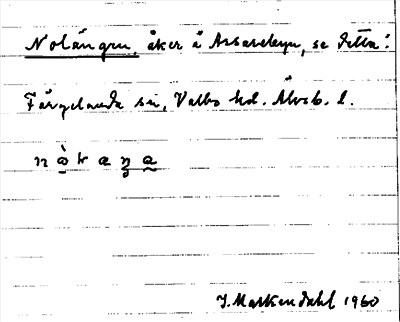 Nolängen, åker å Assarebyn, se detta!
Färgelanda sn, Valbo hd. Älvsb. l.
J. Markendahl 1960